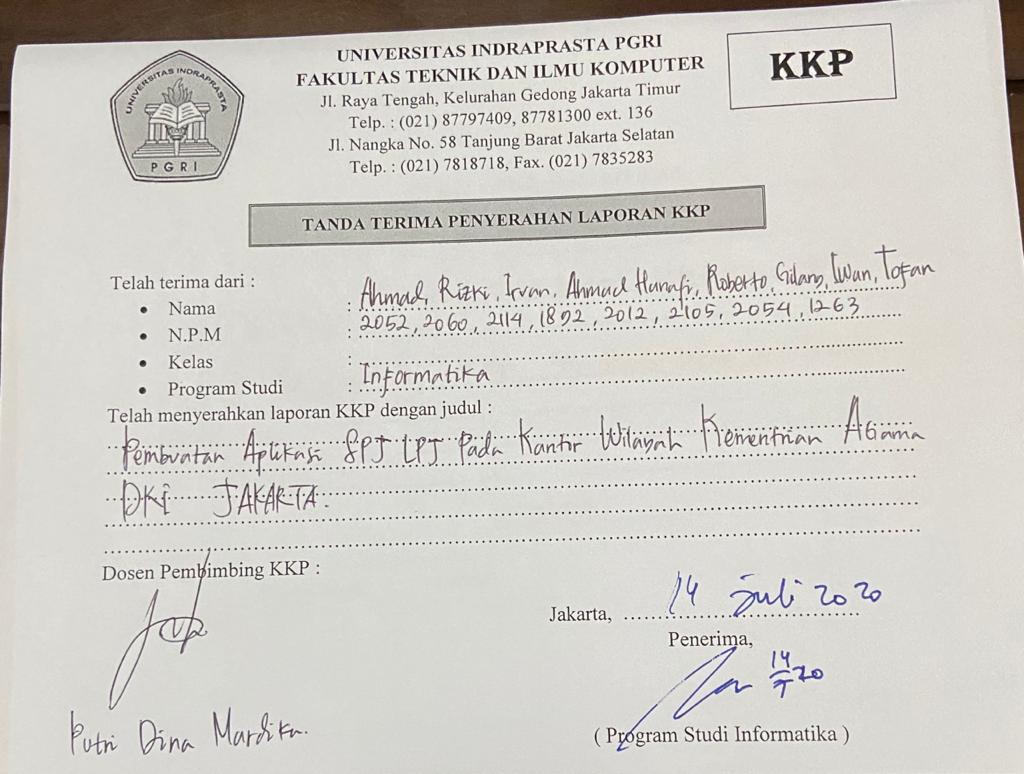 UNIVERSITAS INDRAPRASTA
PGRI
UNIVERSITAS INDRAPRASTA PGRI
FAKULTAS TEKNIK DAN ILMU KOMPUTER
Jl. Raya Tengah, Kelurahan Gedong Jakarta Timur
Telp. : (021) 87797409, 87781300 ext. 136
Jl. Nangka No. 58 Tanjung Barat Jakarta Selatan
Telp. : (021) 7818718, Fax. (021) 7835283
KKP
TANDA TERIMA PENYERAHAN LAPORAN KKP
Telah terima dari :
• Nama : Ahmad, Rizki, Irvan, Ahmad Hanafi, Roberto, Gilang, Iwan, Tofan
• N.P.M : 2052, 2060, 2114, 1892, 2012, 2105, 2054, 1263
• Kelas :
• Program Studi : Informatika
Telah menyerahkan laporan KKP dengan judul :
Pembuatan Aplikasi SPJ LPJ Pada Kantor Wilayah Kementrian Agama
DKI JAKARTA.
Dosen Pembimbing KKP :
Jakarta, 14 Juli 2020
Penerima,
14/7 20
Putri Dina Mardika.
( Program Studi Informatika )